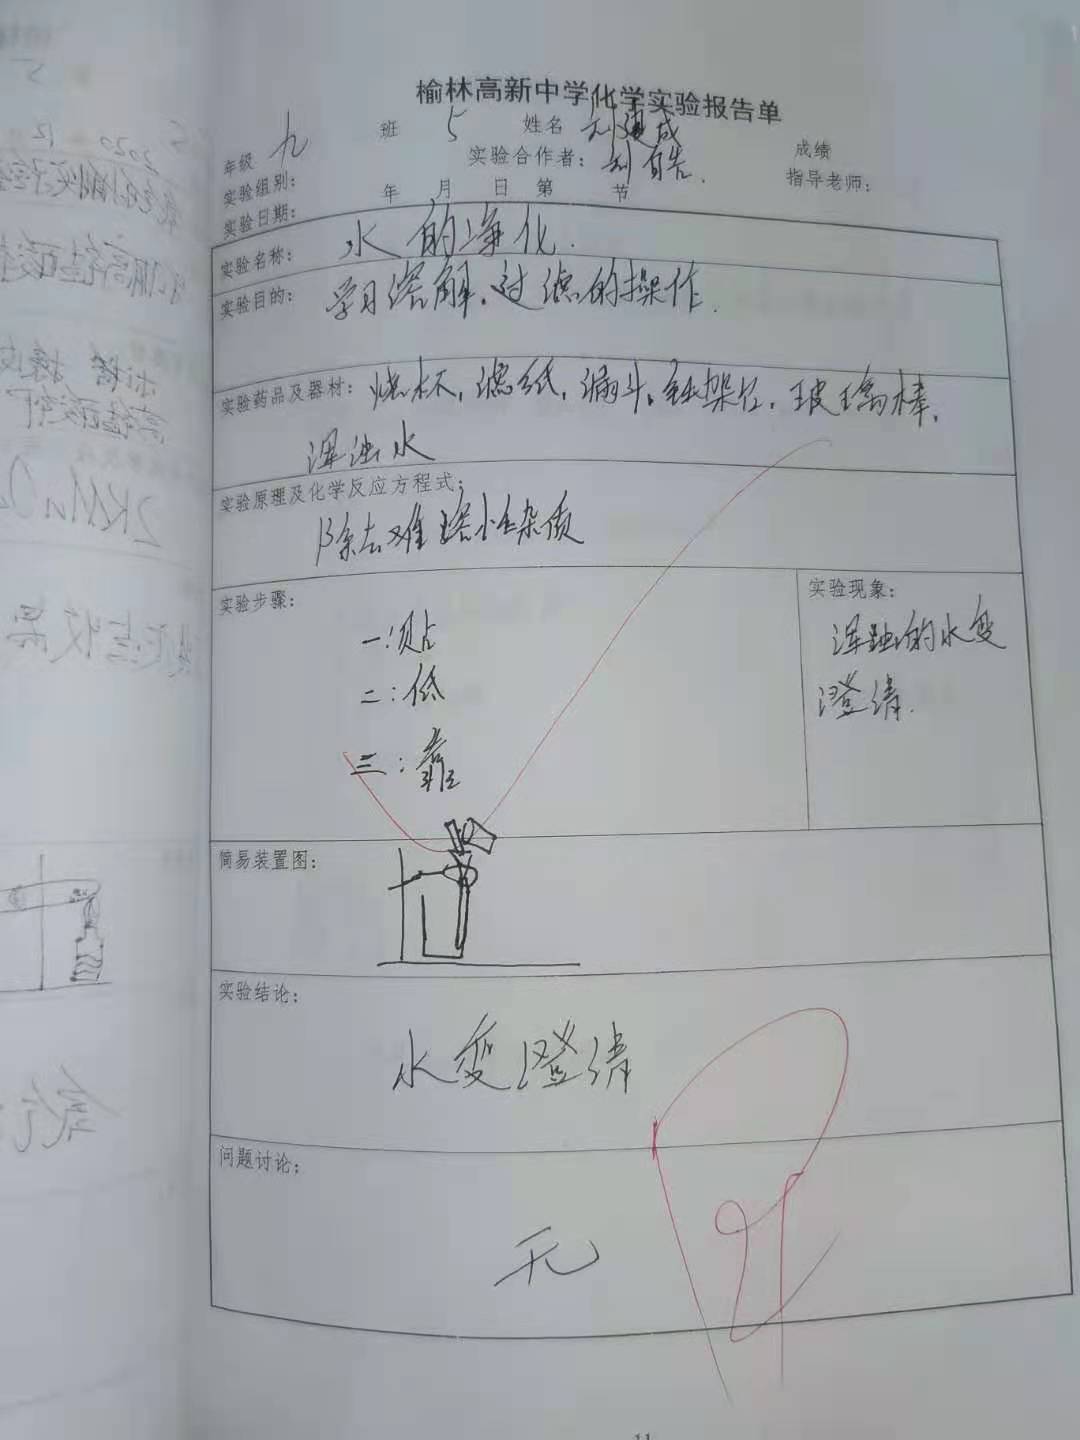 榆林高新中学化学实验报告单
年级 九 班 5 姓名 刘建成 成绩
实验组别: 实验合作者: 刘 指导老师:
实验日期: 年 月 日 第 节
实验名称: 水的净化.
实验目的: 学习溶解、过滤的操作.
实验药品及器材: 烧杯,滤纸,漏斗,铁架台,玻璃棒,
浑浊水
实验原理及化学反应方程式:
除去难溶性杂质
实验步骤:
一:贴
二:低
三:靠
实验现象:
浑蚀的水变
澄清.
简易装置图:
实验结论:
水变澄清
问题讨论:
无
11
2020 12
2KMnO